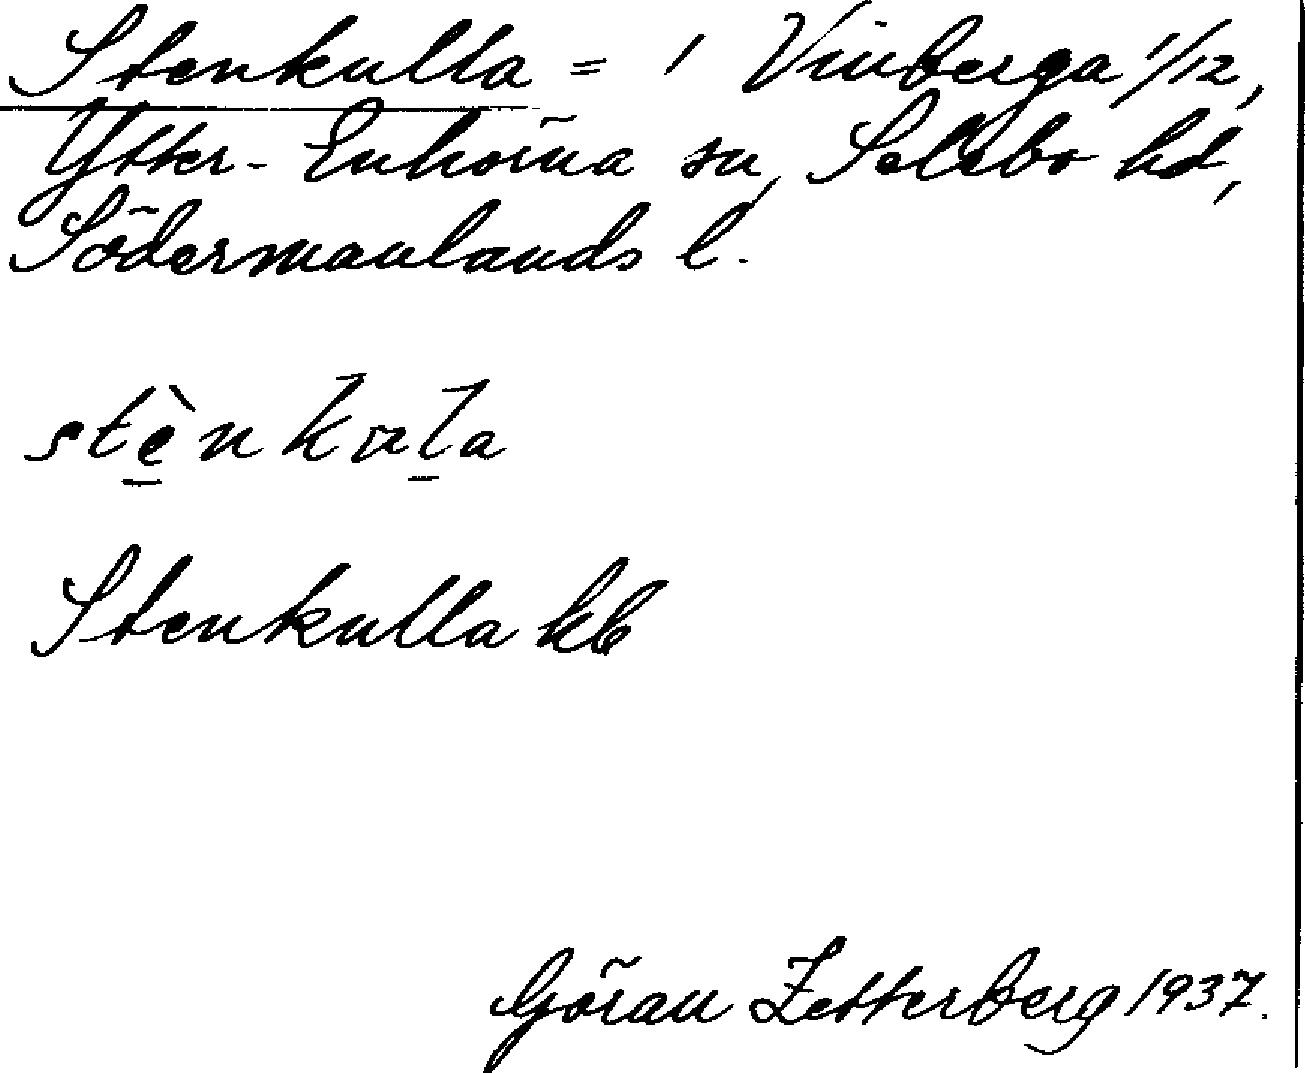 Stenkulla = 1 Vinberga 1/12,
Ytter-Enhörna sn, Selebo hd,
Södermanlands l.
stè̱nkuḻa
Stenkulla kb
Göran Zetterberg 1937.